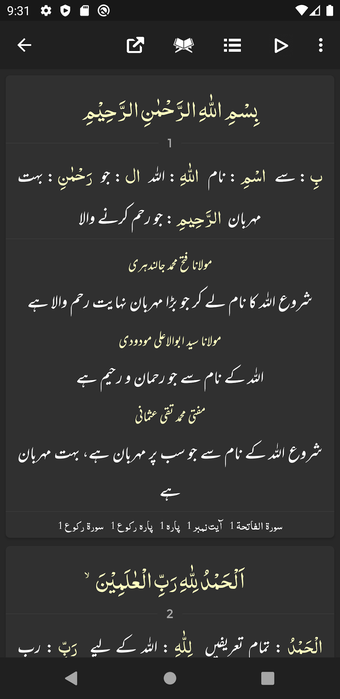 9:31
بِسْمِ اللّٰهِ الرَّحْمٰنِ الرَّحِيْمِ
1
بِ : سے اسْمِ : نام اللّٰهِ : اللہ ال : جو رَحْمٰنِ : بہت
مہربان الرَّحِيْمِ : جو رحم کرنے والا
مولانا فتح محمد جالندہری
شروع اللہ کا نام لے کر جو بڑا مہربان نہایت رحم والا ہے
مولانا سید ابوالاعلی مودودی
اللہ کے نام سے جو رحمان و رحیم ہے
مفتی محمد تقی عثمانی
شروع اللہ کے نام سے جو سب پر مہربان ہے، بہت مہربان
ہے
سورۃ الفاتحۃ 1 آیت نمبر 1 پارہ 1 پارہ رکوع 1 سورۃ رکوع 1
اَلْحَمْدُ لِلّٰهِ رَبِّ الْعٰلَمِيْنَ ۙ
2
الْحَمْدُ : تمام تعریفیں لِلّٰهِ : اللہ کے لیے رَبِّ : رب